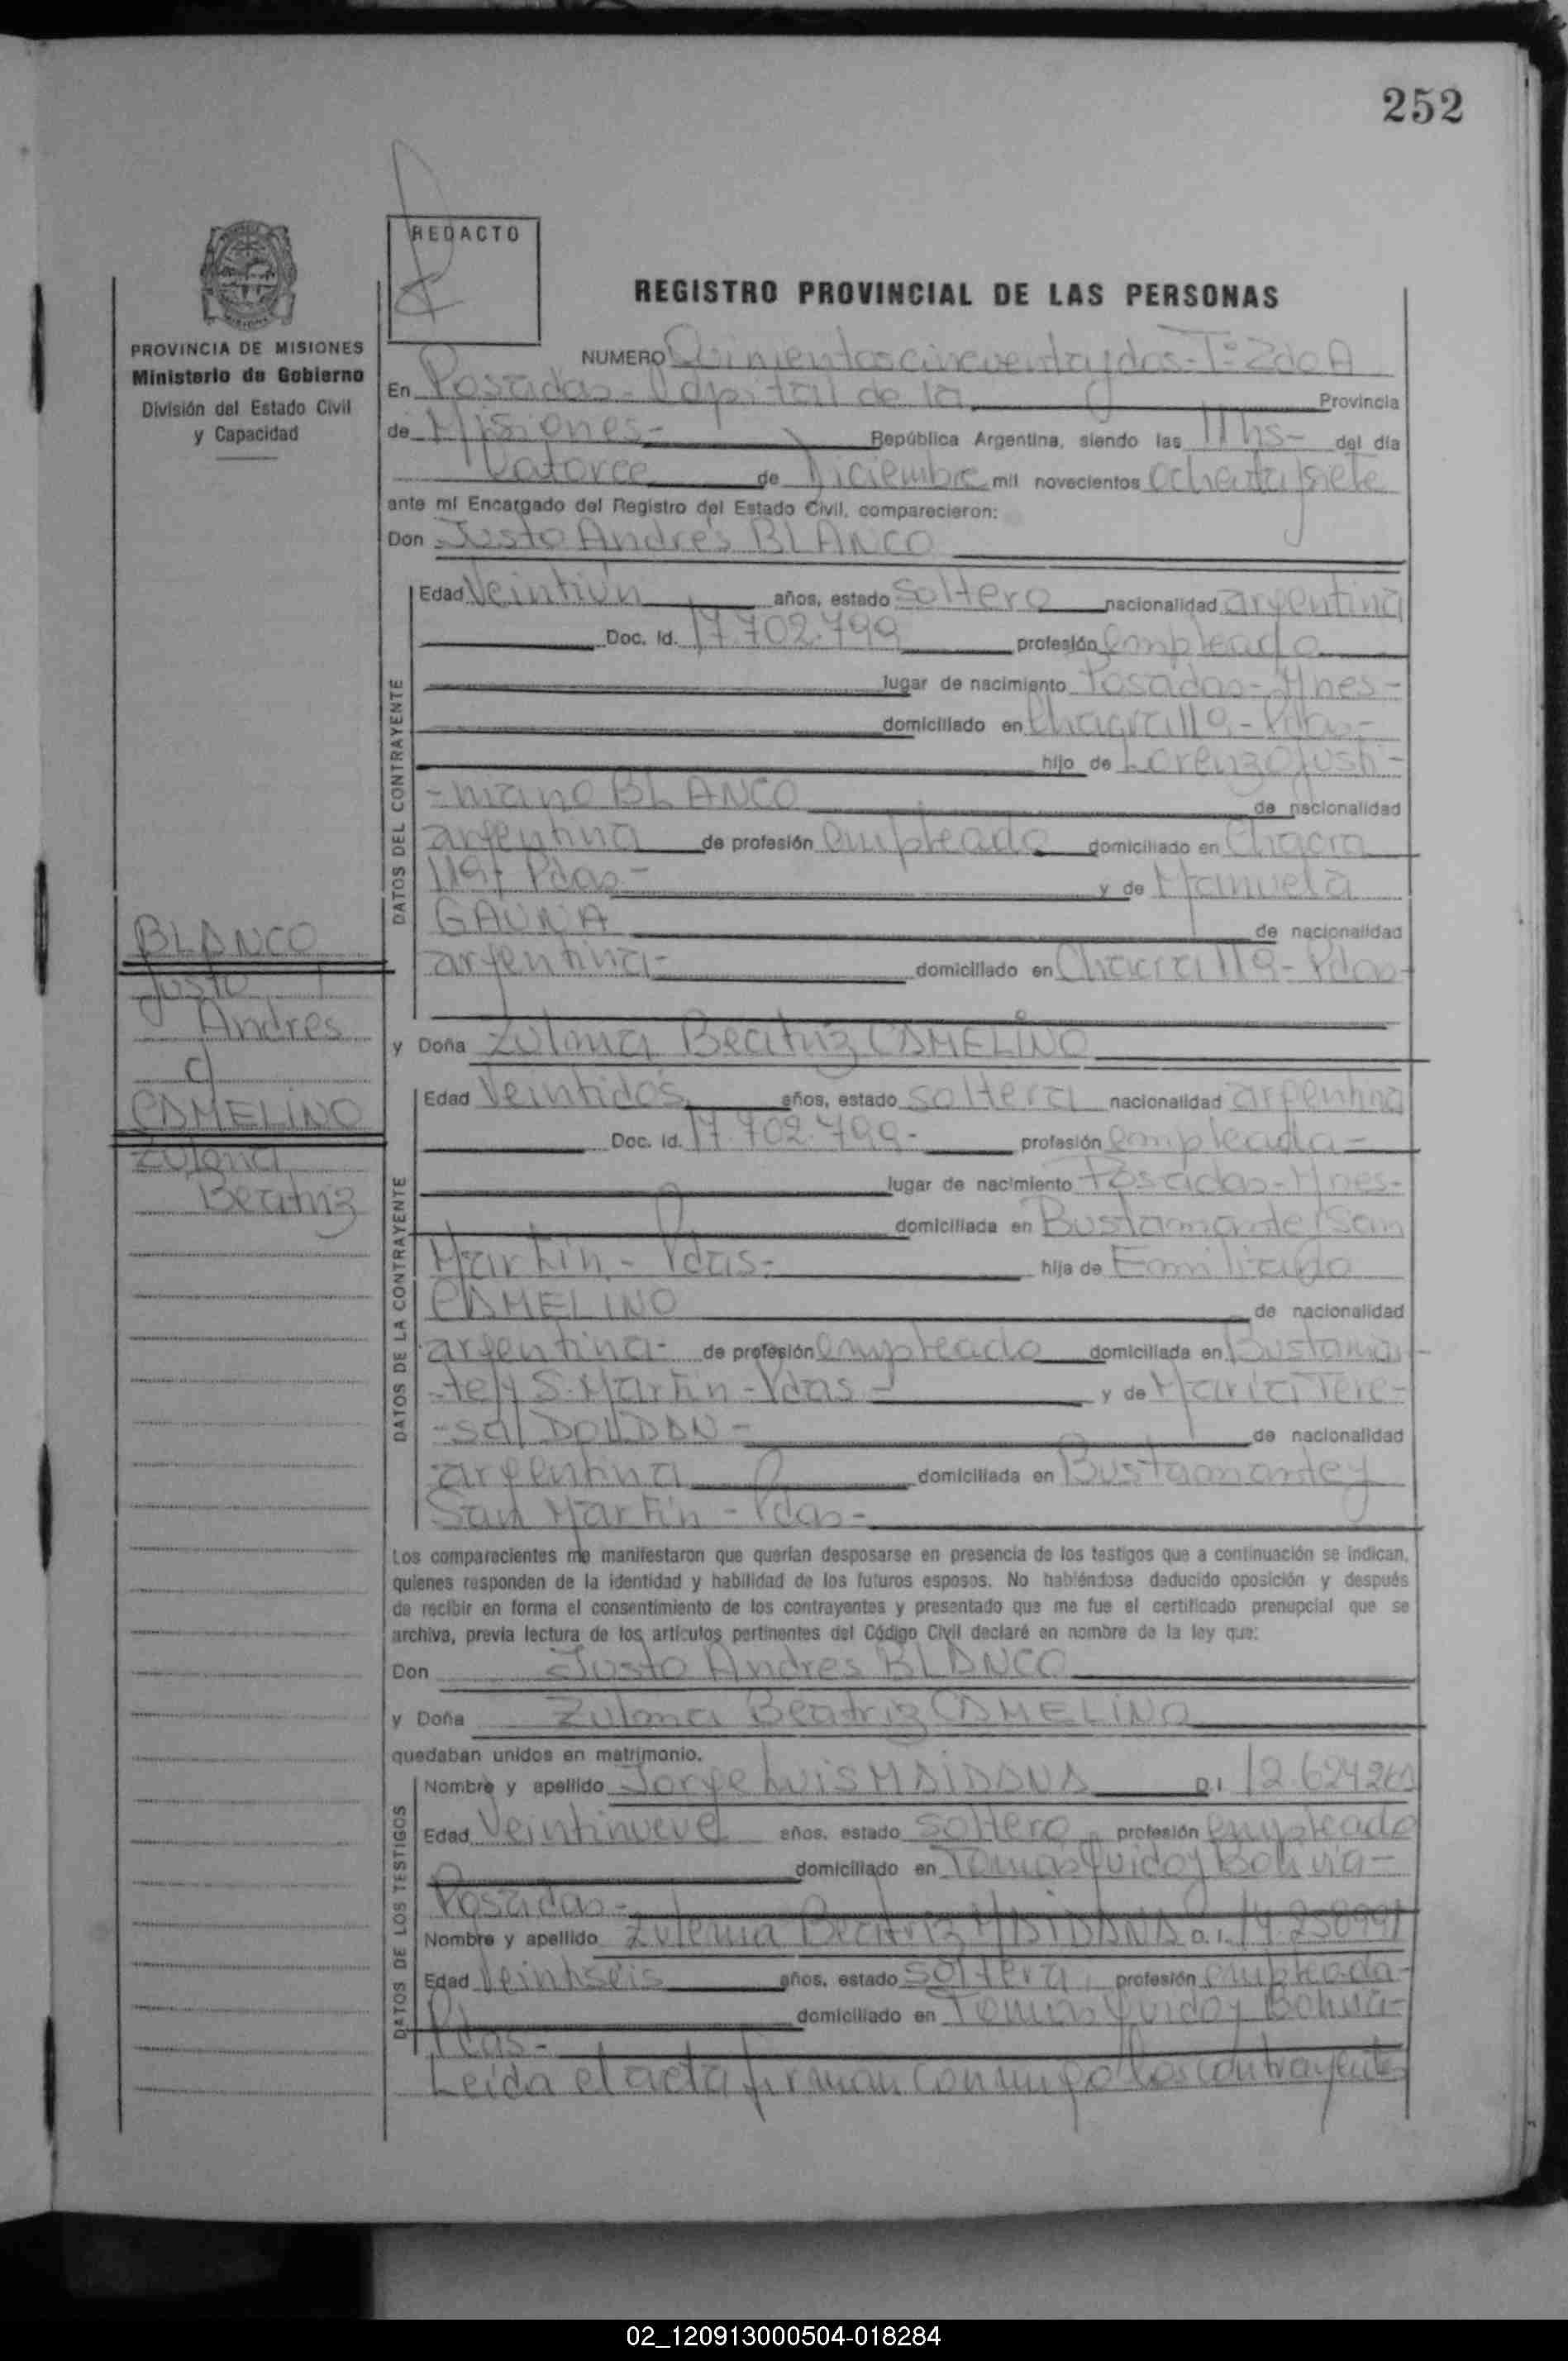 252
REDACTO
REGISTRO PROVINCIAL DE LAS PERSONAS
PROVINCIA DE MISIONES
Ministerio de Gobierno
División del Estado Civil
y Capacidad
NUMERO Quinientos cincuenta y dos - Tº 2do A
En Posadas - Capital de la Provincia
de Misiones - República Argentina, siendo las 11 hs - del día
Catorce de Diciembre mil novecientos ochenta y siete
ante mí Encargado del Registro del Estado Civil, comparecieron:
Don Justo Andrés BLANCO
DATOS DEL CONTRAYENTE
Edad Veintiún años, estado soltero nacionalidad argentina
Doc. Id. 17.702.799 profesión empleado
lugar de nacimiento Posadas - Mnes -
domiciliado en Chacra 119 - Pdas -
hijo de Lorenzo Justi-
-niano BLANCO de nacionalidad
argentina de profesión empleado domiciliado en Chacra
119 Pdas - y de Manuela
GAUNA de nacionalidad
argentina - domiciliado en Chacra 119 - Pdas -
BLANCO
Justo
Andres
c/
CAMELINO
Zulma
Beatriz
y Doña Zulma Beatriz CAMELINO
DATOS DE LA CONTRAYENTE
Edad Veintidós años, estado soltera nacionalidad argentina
Doc. Id. 17.702.799 - profesión empleada -
lugar de nacimiento Posadas - Mnes -
domiciliada en Bustamante y San
Martín - Pdas - hija de Emiliano
CAMELINO de nacionalidad
argentina - de profesión empleado domiciliada en Bustaman-
-te y S. Martín - Pdas - y de María Tere-
-sa de nacionalidad
argentina domiciliada en Bustamante y
San Martín - Pdas -
Los comparecientes me manifestaron que querían desposarse en presencia de los testigos que a continuación se indican,
quienes responden de la identidad y habilidad de los futuros esposos. No habiéndose deducido oposición y después
de recibir en forma el consentimiento de los contrayentes y presentado que me fue el certificado prenupcial que se
archiva, previa lectura de los artículos pertinentes del Código Civil declaré en nombre de la ley que:
Don Justo Andres BLANCO
y Doña Zulma Beatriz CAMELINO
quedaban unidos en matrimonio.
DATOS DE LOS TESTIGOS
Nombre y apellido Jorge Luis MAIDANA D.I.
Edad Veintinueve años, estado soltero profesión empleado
domiciliado en Tomas Guido y Bolivia -
Posadas -
Nombre y apellido Zulema Beatriz MAIDANA D.I.
Edad Veintiseis años, estado soltera profesión empleada -
domiciliado en Tomas Guido y Bolivia -
Pdas -
Leída el acta firman conmigo los contrayentes
02_120913000504-018284